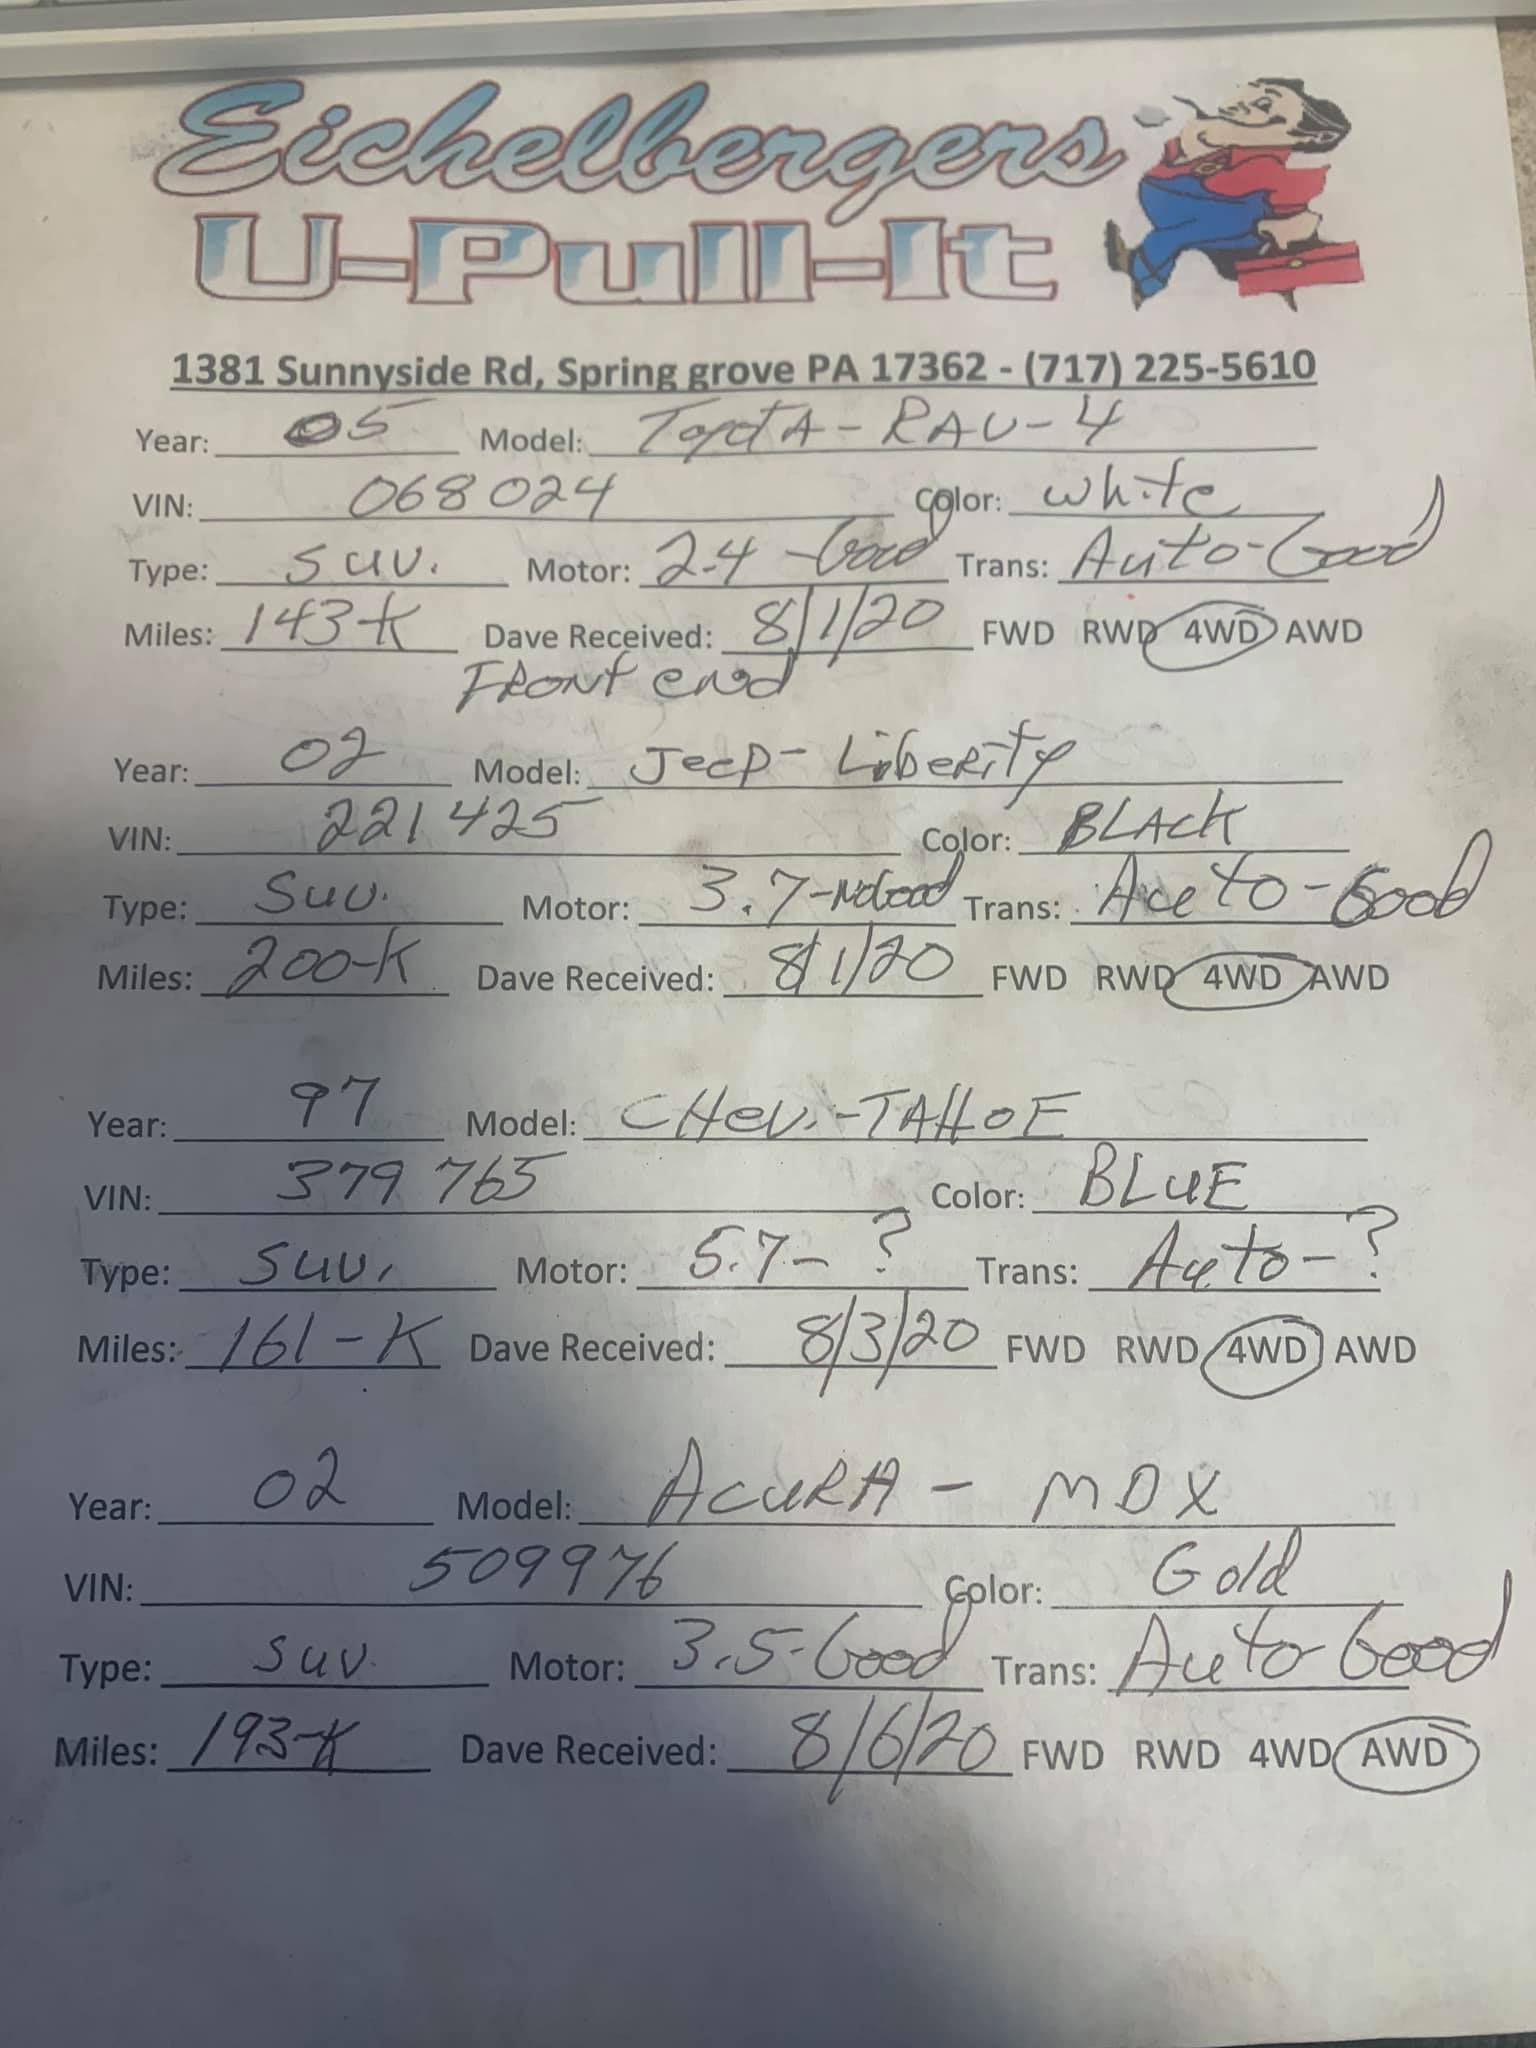 Eichelbergers
U-Pull-It
1381 Sunnyside Rd, Spring grove PA 17362 - (717) 225-5610
Year: 05 Model: Toyota - RAV-4
VIN: 068024 Color: white
Type: SUV. Motor: 2.4 - Good Trans: Auto-Good
Miles: 143-K Dave Received: 8/1/20 FWD RWD 4WD AWD
FRont end
Year: 02 Model: Jeep - LibeRity
VIN: 221425 Color: BLACK
Type: SUV. Motor: 3.7-NoGood Trans: Auto-Good
Miles: 200-K Dave Received: 8/1/20 FWD RWD 4WD AWD
Year: 97 Model: CHev.-TAHOE
VIN: 379765 Color: BLUE
Type: SUV. Motor: 5.7-? Trans: Auto-?
Miles: 161-K Dave Received: 8/3/20 FWD RWD 4WD AWD
Year: 02 Model: AcuRA - MDX
VIN: 509976 Color: Gold
Type: SUV. Motor: 3.5-Good Trans: Auto-Good
Miles: 193-K Dave Received: 8/6/20 FWD RWD 4WD AWD